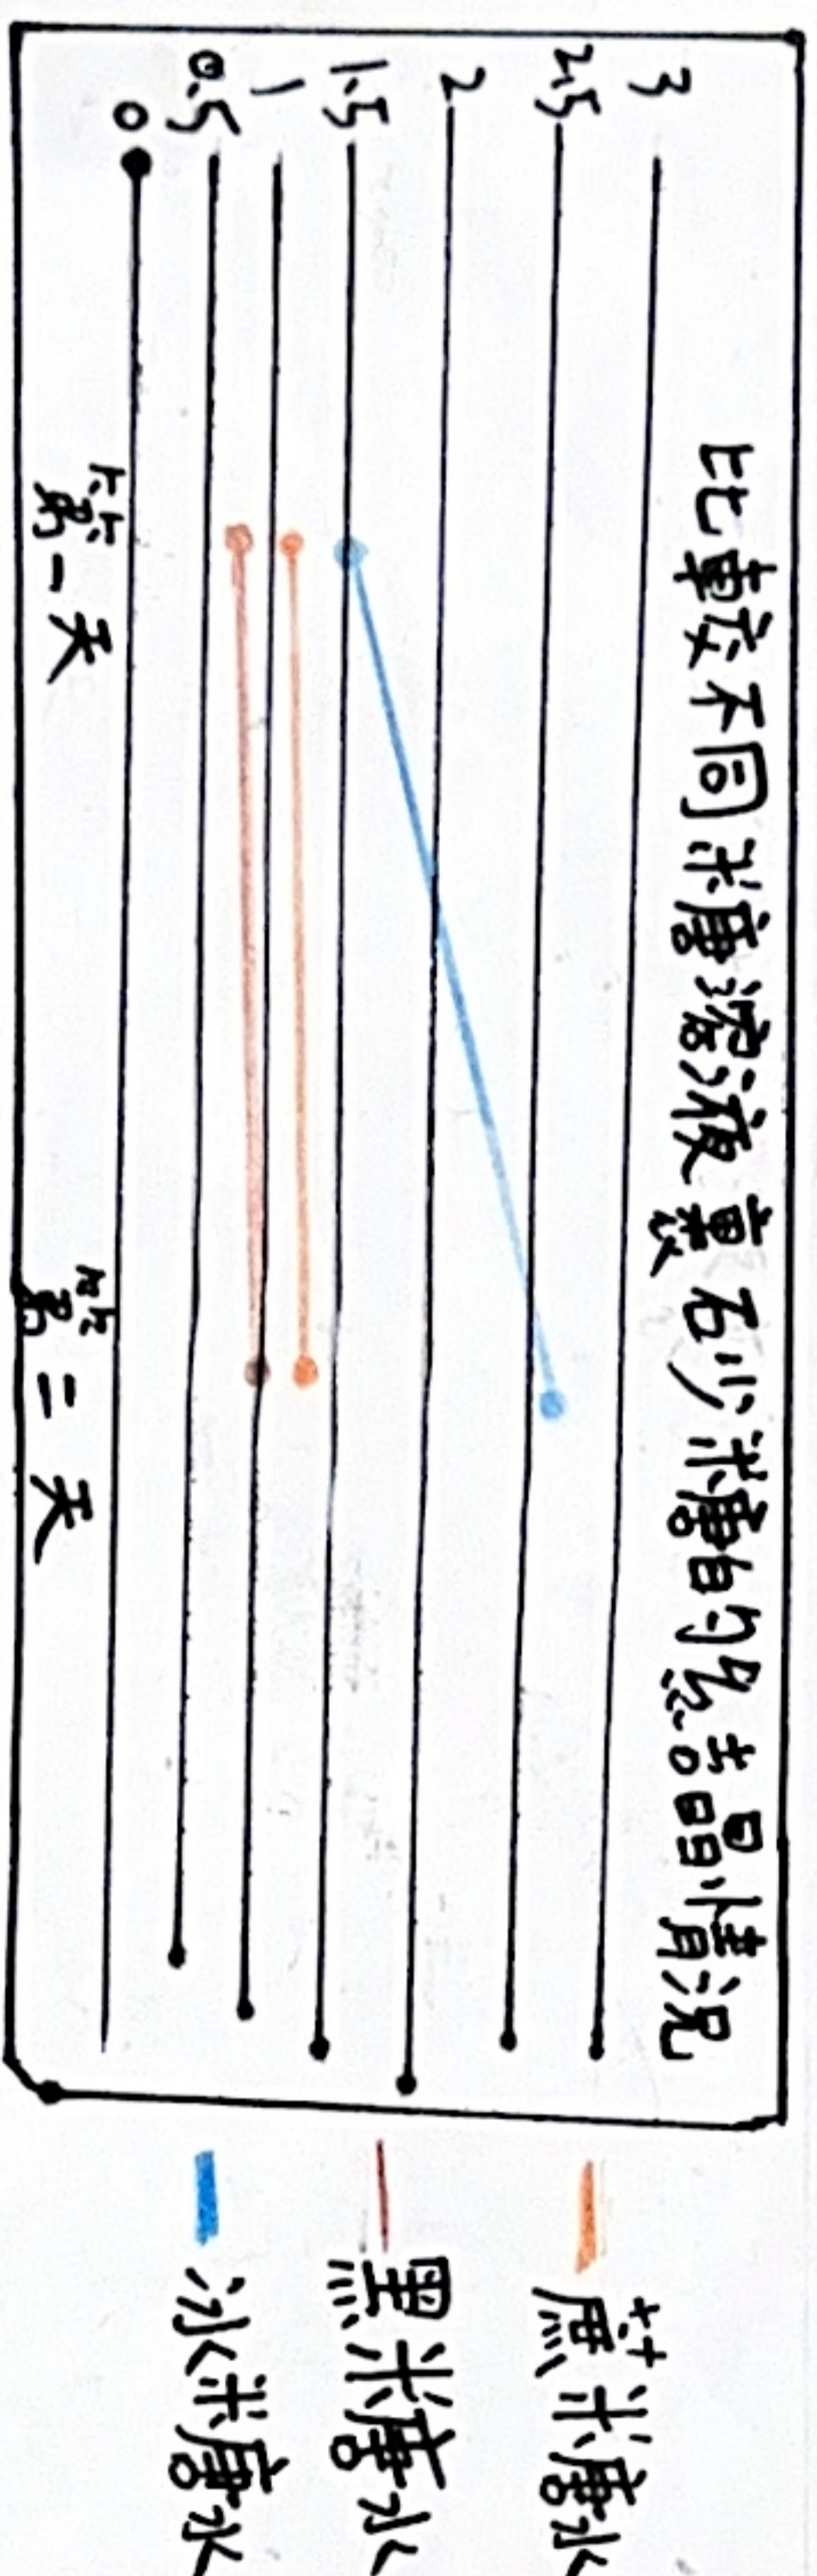 比較不同糖溶液裹砂糖的總結晶情況
3
2.5
2
1.5
1
0.5
0
第一天
第二天
蔗糖水
黑糖水
冰糖水